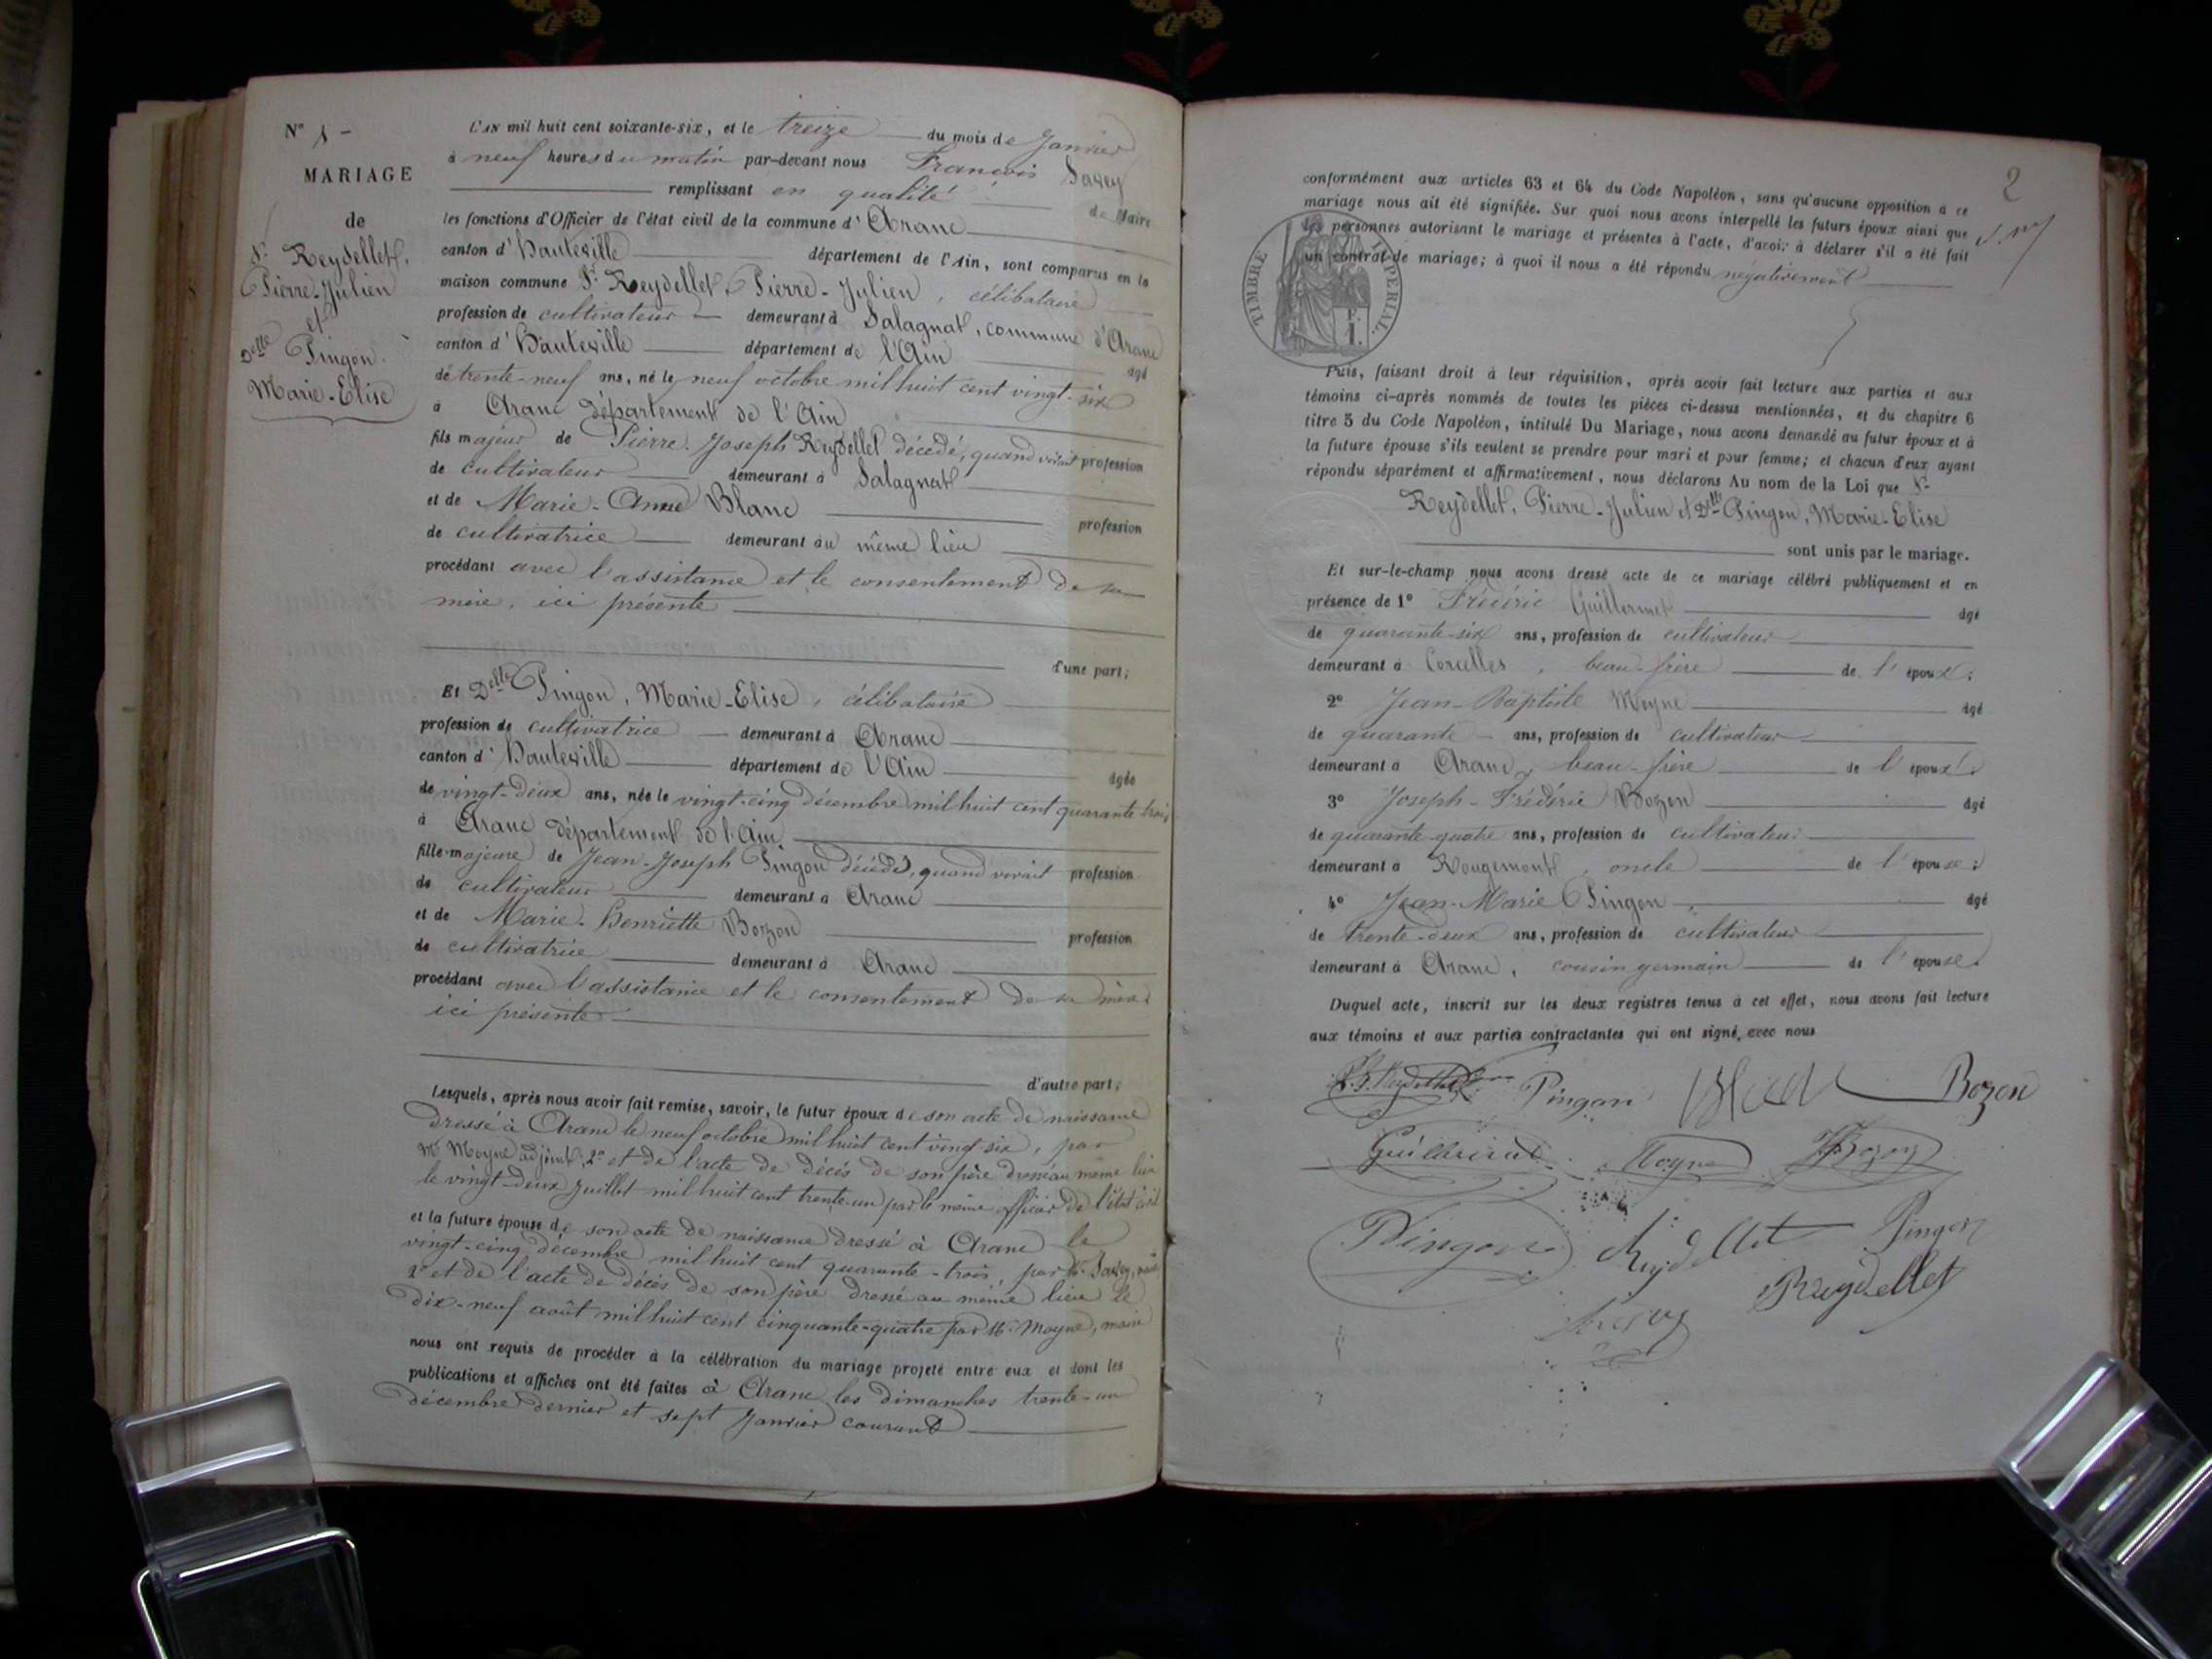 N° 1 -
MARIAGE
de
Sr Reydellet,
Pierre-Julien
et
Delle Pingon
Marie-Elise
L'AN mil huit cent soixante-six, et le treize du mois de Janvier
à neuf heures du matin par-devant nous François Savey
remplissant en qualité de Maire
les fonctions d'Officier de l'état civil de la commune d'Aranc
canton d'Hauteville département de l'Ain, sont comparus en la
maison commune Sr Reydellet, Pierre-Julien, célibataire
profession de cultivateur demeurant à Salagnat, commune d'Aranc
canton d'Hauteville département de l'Ain âgé
de trente-neuf ans, né le neuf octobre mil huit cent vingt-six
à Aranc département de l'Ain
fils majeur de Pierre-Joseph Reydellet décédé, quand vivait profession
de cultivateur demeurant à Salagnat
et de Marie-Anne Blanc profession
de cultivatrice demeurant au même lieu
procédant avec l'assistance et le consentement de sa
mère, ici présente
d'une part;
Et Delle Pingon, Marie-Elise, célibataire
profession de cultivatrice demeurant à Aranc
canton d'Hauteville département de l'Ain âgée
de vingt-deux ans, née le vingt-cinq décembre mil huit cent quarante-trois
à Aranc département de l'Ain
fille majeure de Jean-Joseph Pingon décédé, quand vivait profession
de cultivateur demeurant à Aranc
et de Marie-Henriette Bozon profession
de cultivatrice demeurant à Aranc
procédant avec l'assistance et le consentement de sa mère
ici présente
d'autre part;
Lesquels, après nous avoir fait remise, savoir, le futur époux de son acte de naissance
dressé à Aranc le neuf octobre mil huit cent vingt-six, par
Mr Moyne adjoint; 2° et de l'acte de décès de son père dressé au même lieu
le vingt-deux juillet mil huit cent trente-un par le même officier de l'état civil
et la future épouse de son acte de naissance dressé à Aranc le
vingt-cinq décembre mil huit cent quarante-trois, par Mr Savey, maire
2° et de l'acte de décès de son père dressé au même lieu le
dix-neuf août mil huit cent cinquante-quatre par Mr Moyne, maire
nous ont requis de procéder à la célébration du mariage projeté entre eux et dont les
publications et affiches ont été faites à Aranc les dimanches trente-un
décembre dernier et sept Janvier courant
2
conformément aux articles 63 et 64 du Code Napoléon, sans qu'aucune opposition à ce
mariage nous ait été signifiée. Sur quoi nous avons interpellé les futurs époux ainsi que
les personnes autorisant le mariage et présentes à l'acte, d'avoir à déclarer s'il a été fait
un contrat de mariage; à quoi il nous a été répondu négativement
TIMBRE IMPERIAL
F.
1.
Puis, faisant droit à leur réquisition, après avoir fait lecture aux parties et aux
témoins ci-après nommés de toutes les pièces ci-dessus mentionnées, et du chapitre 6
titre 5 du Code Napoléon, intitulé Du Mariage, nous avons demandé au futur époux et à
la future épouse s'ils veulent se prendre pour mari et pour femme; et chacun d'eux ayant
répondu séparément et affirmativement, nous déclarons Au nom de la Loi que Sr
Reydellet, Pierre-Julien et Delle Pingon, Marie-Elise
sont unis par le mariage.
Et sur-le-champ nous avons dressé acte de ce mariage célébré publiquement et en
présence de 1° Frédéric Guillermet âgé
de quarante-six ans, profession de cultivateur
demeurant à Corcelles, beau-frère de l'époux;
2° Jean-Baptiste Moyne âgé
de quarante ans, profession de cultivateur
demeurant à Aranc, beau-frère de l'époux;
3° Joseph-Frédéric Bozon âgé
de quarante-quatre ans, profession de cultivateur
demeurant à Rougemont, oncle de l'épouse;
4° Jean-Marie Pingon âgé
de trente-deux ans, profession de cultivateur
demeurant à Aranc, cousin germain de l'épouse.
Duquel acte, inscrit sur les deux registres tenus à cet effet, nous avons fait lecture
aux témoins et aux parties contractantes qui ont signé avec nous
Pingon Bozon
Moyne Bozon
Pingon Reydellet Pingon
Reydellet
Savey